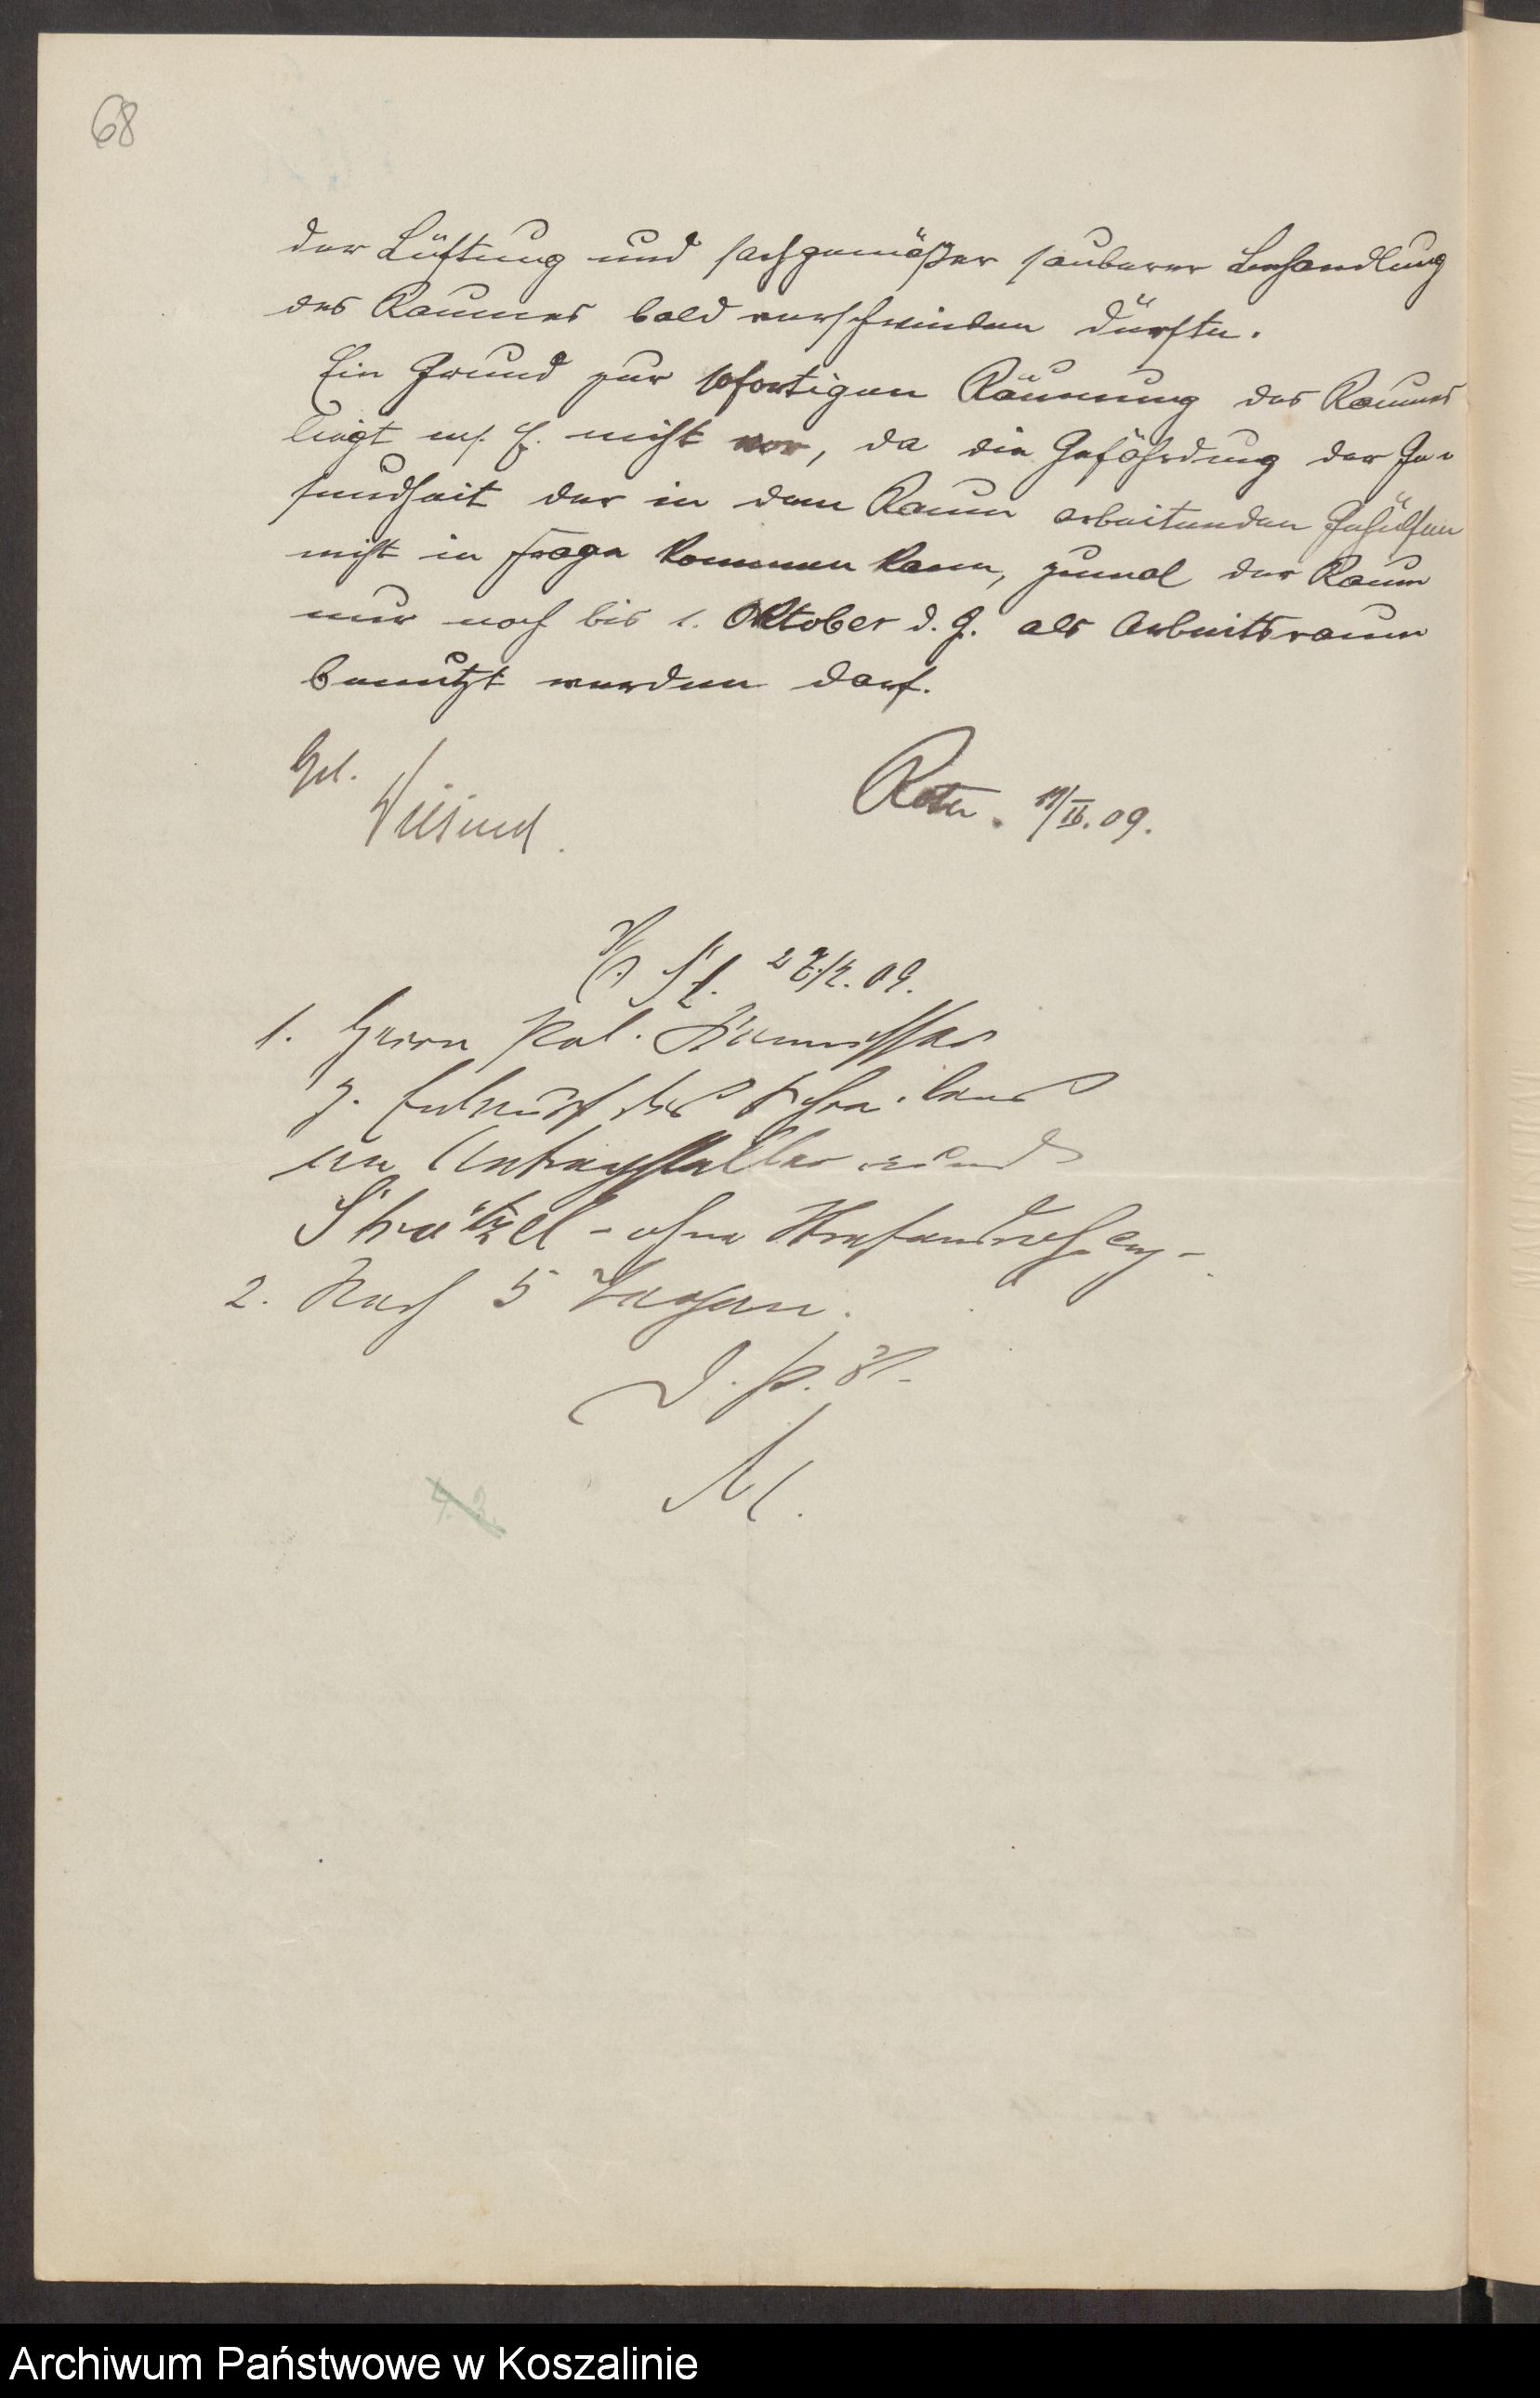 68
der Lüftung und sachgemäßer sauberer Behandlung
des Raumes bald verschwinden dürfte.
Ein Grund zur sofortigen Räumung des Raumes
liegt m. E. nicht vor, da die Gefährdung der Ge-
sundheit der in dem Raum arbeitenden Gehülfen
nicht in Frage kommen kann, zumal der Raum
nur noch bis 1. Oktober d. J. als Arbeitsraum
benutzt werden darf.
Gel.
09.
09.
1. Herrn Pol. Kommissar
z. Entwurf des Schreibens
an Antragsteller und
- ohne Strafandrohung -
2. Nach 5 Tagen.
D. P. V.
M.
Archiwum Państwowe w Koszalinie